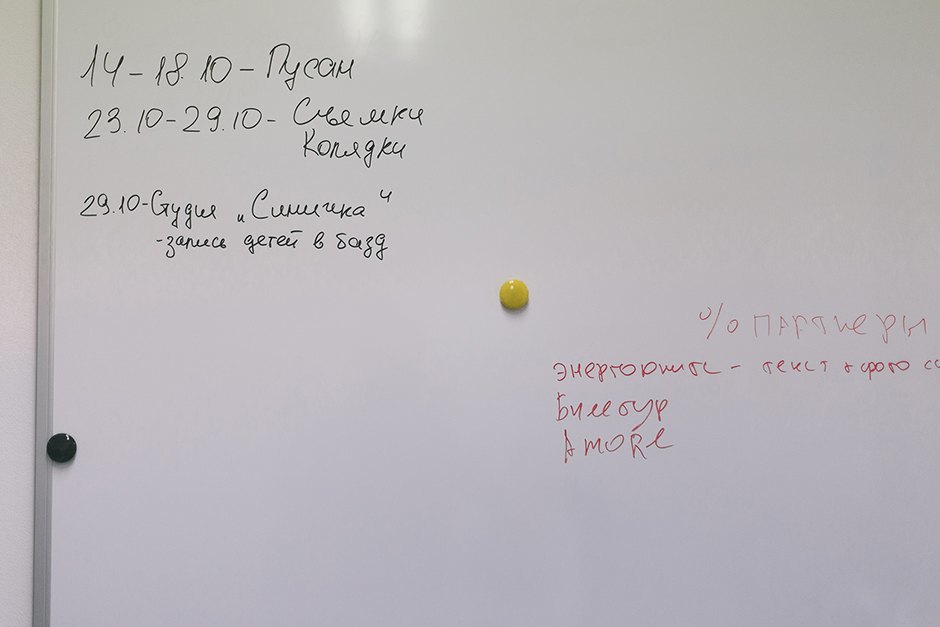 14-18.10-Пусан
23.10-29.10- Съемки
Колядки
29.10-Студия „Синичка“
-запись детей в базу
% ПАРТНЕРЫ
- текст + фото
Билетур
AmoRe